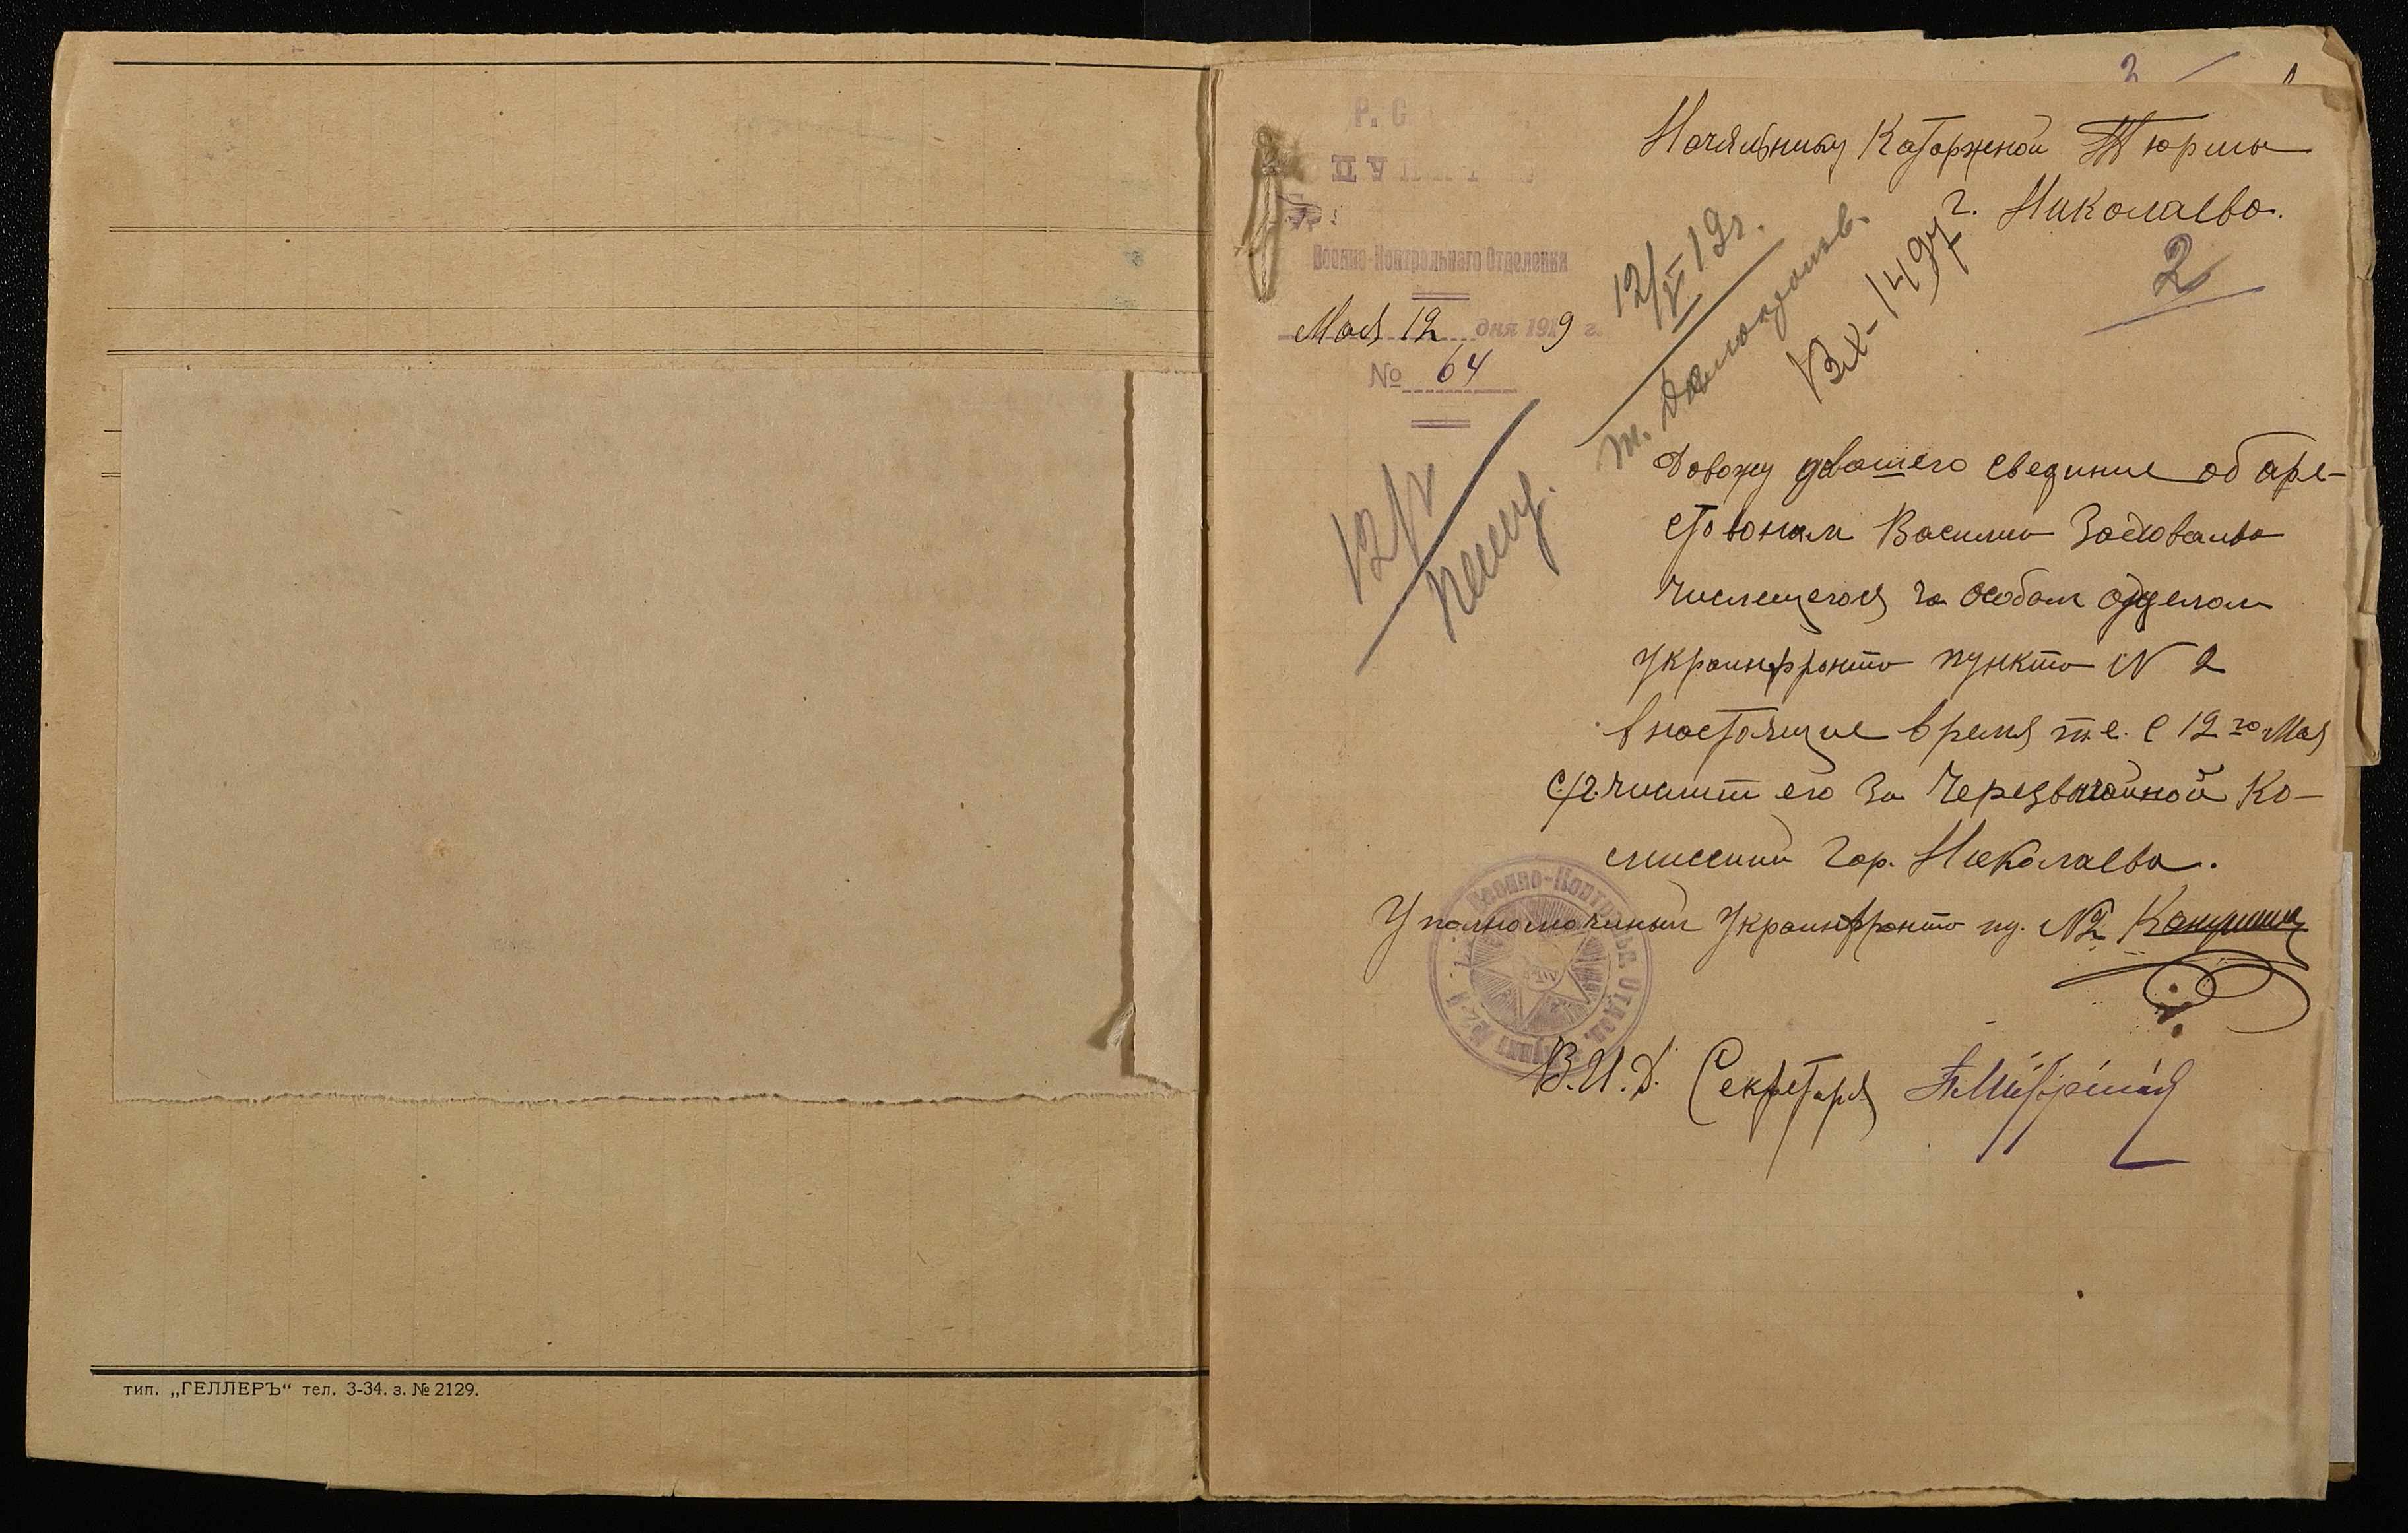 тип. „ГЕЛЛЕРЪ“ тел. 3-34. з. № 2129.
2
Р. С
ПУНКТ
Военно-Контрольнаго Отделения
Мая 12 дня 1919 г.
№ 64
Начальнику Каторжной Тюрмы
г. Николаева.
2
12/V 19 г.
Вх-1497
12/V
Довожу довашего свединие об аре-
стованом Василию
числещегося за особом отделом
Украинфронта пункта N 2
в настоящие время т.е. с 12 го Мая
с/г. числит его за Черезвычайной Ко-
миссиий гор. Николаева.
Уполномоченый Украинфронта пу. №2
Военно-Контрольн. Отдел.
В.И.Д. Секретаря